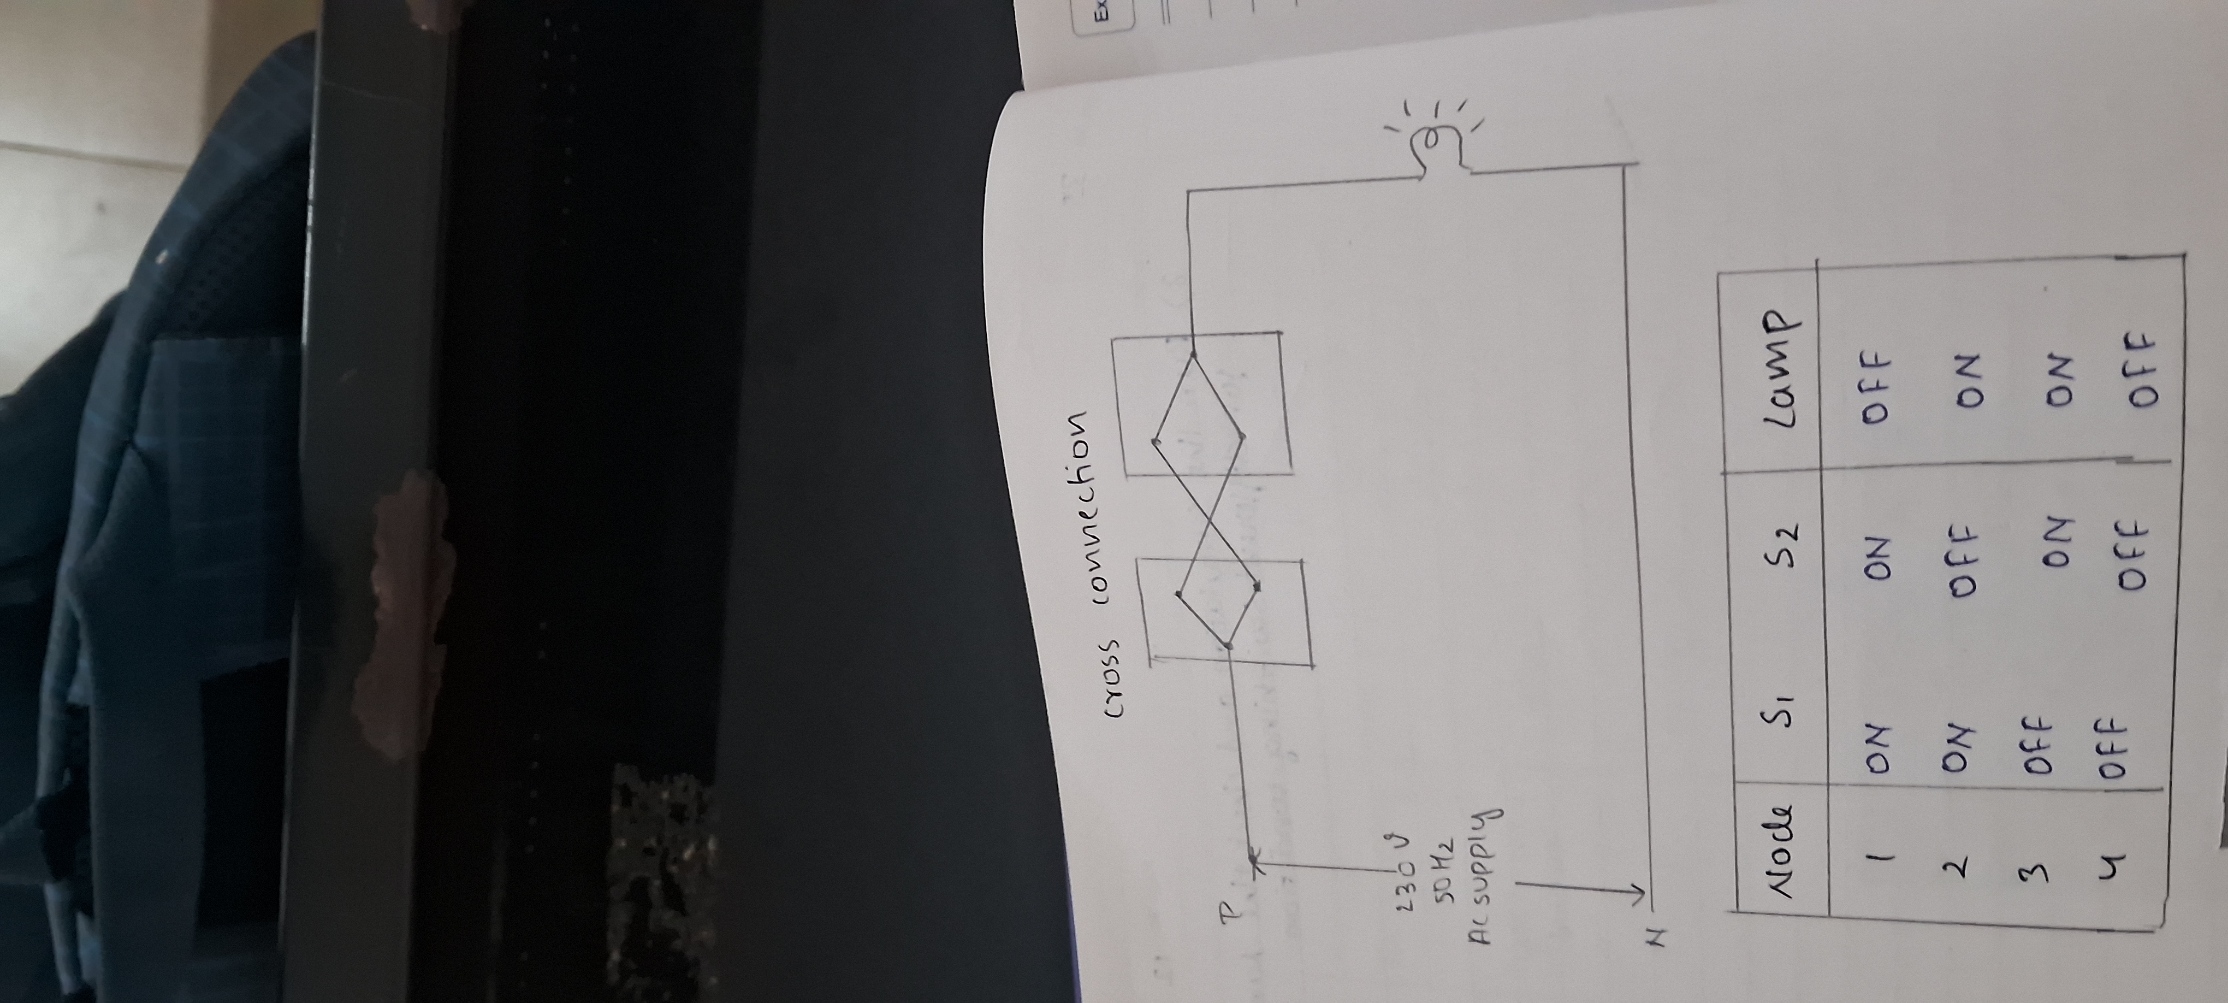 cross connection
P
230 V
50 Hz
AC supply
N
Node S1 S2 Lamp
1 ON ON OFF
2 ON OFF ON
3 OFF ON ON
4 OFF OFF OFF
Ex